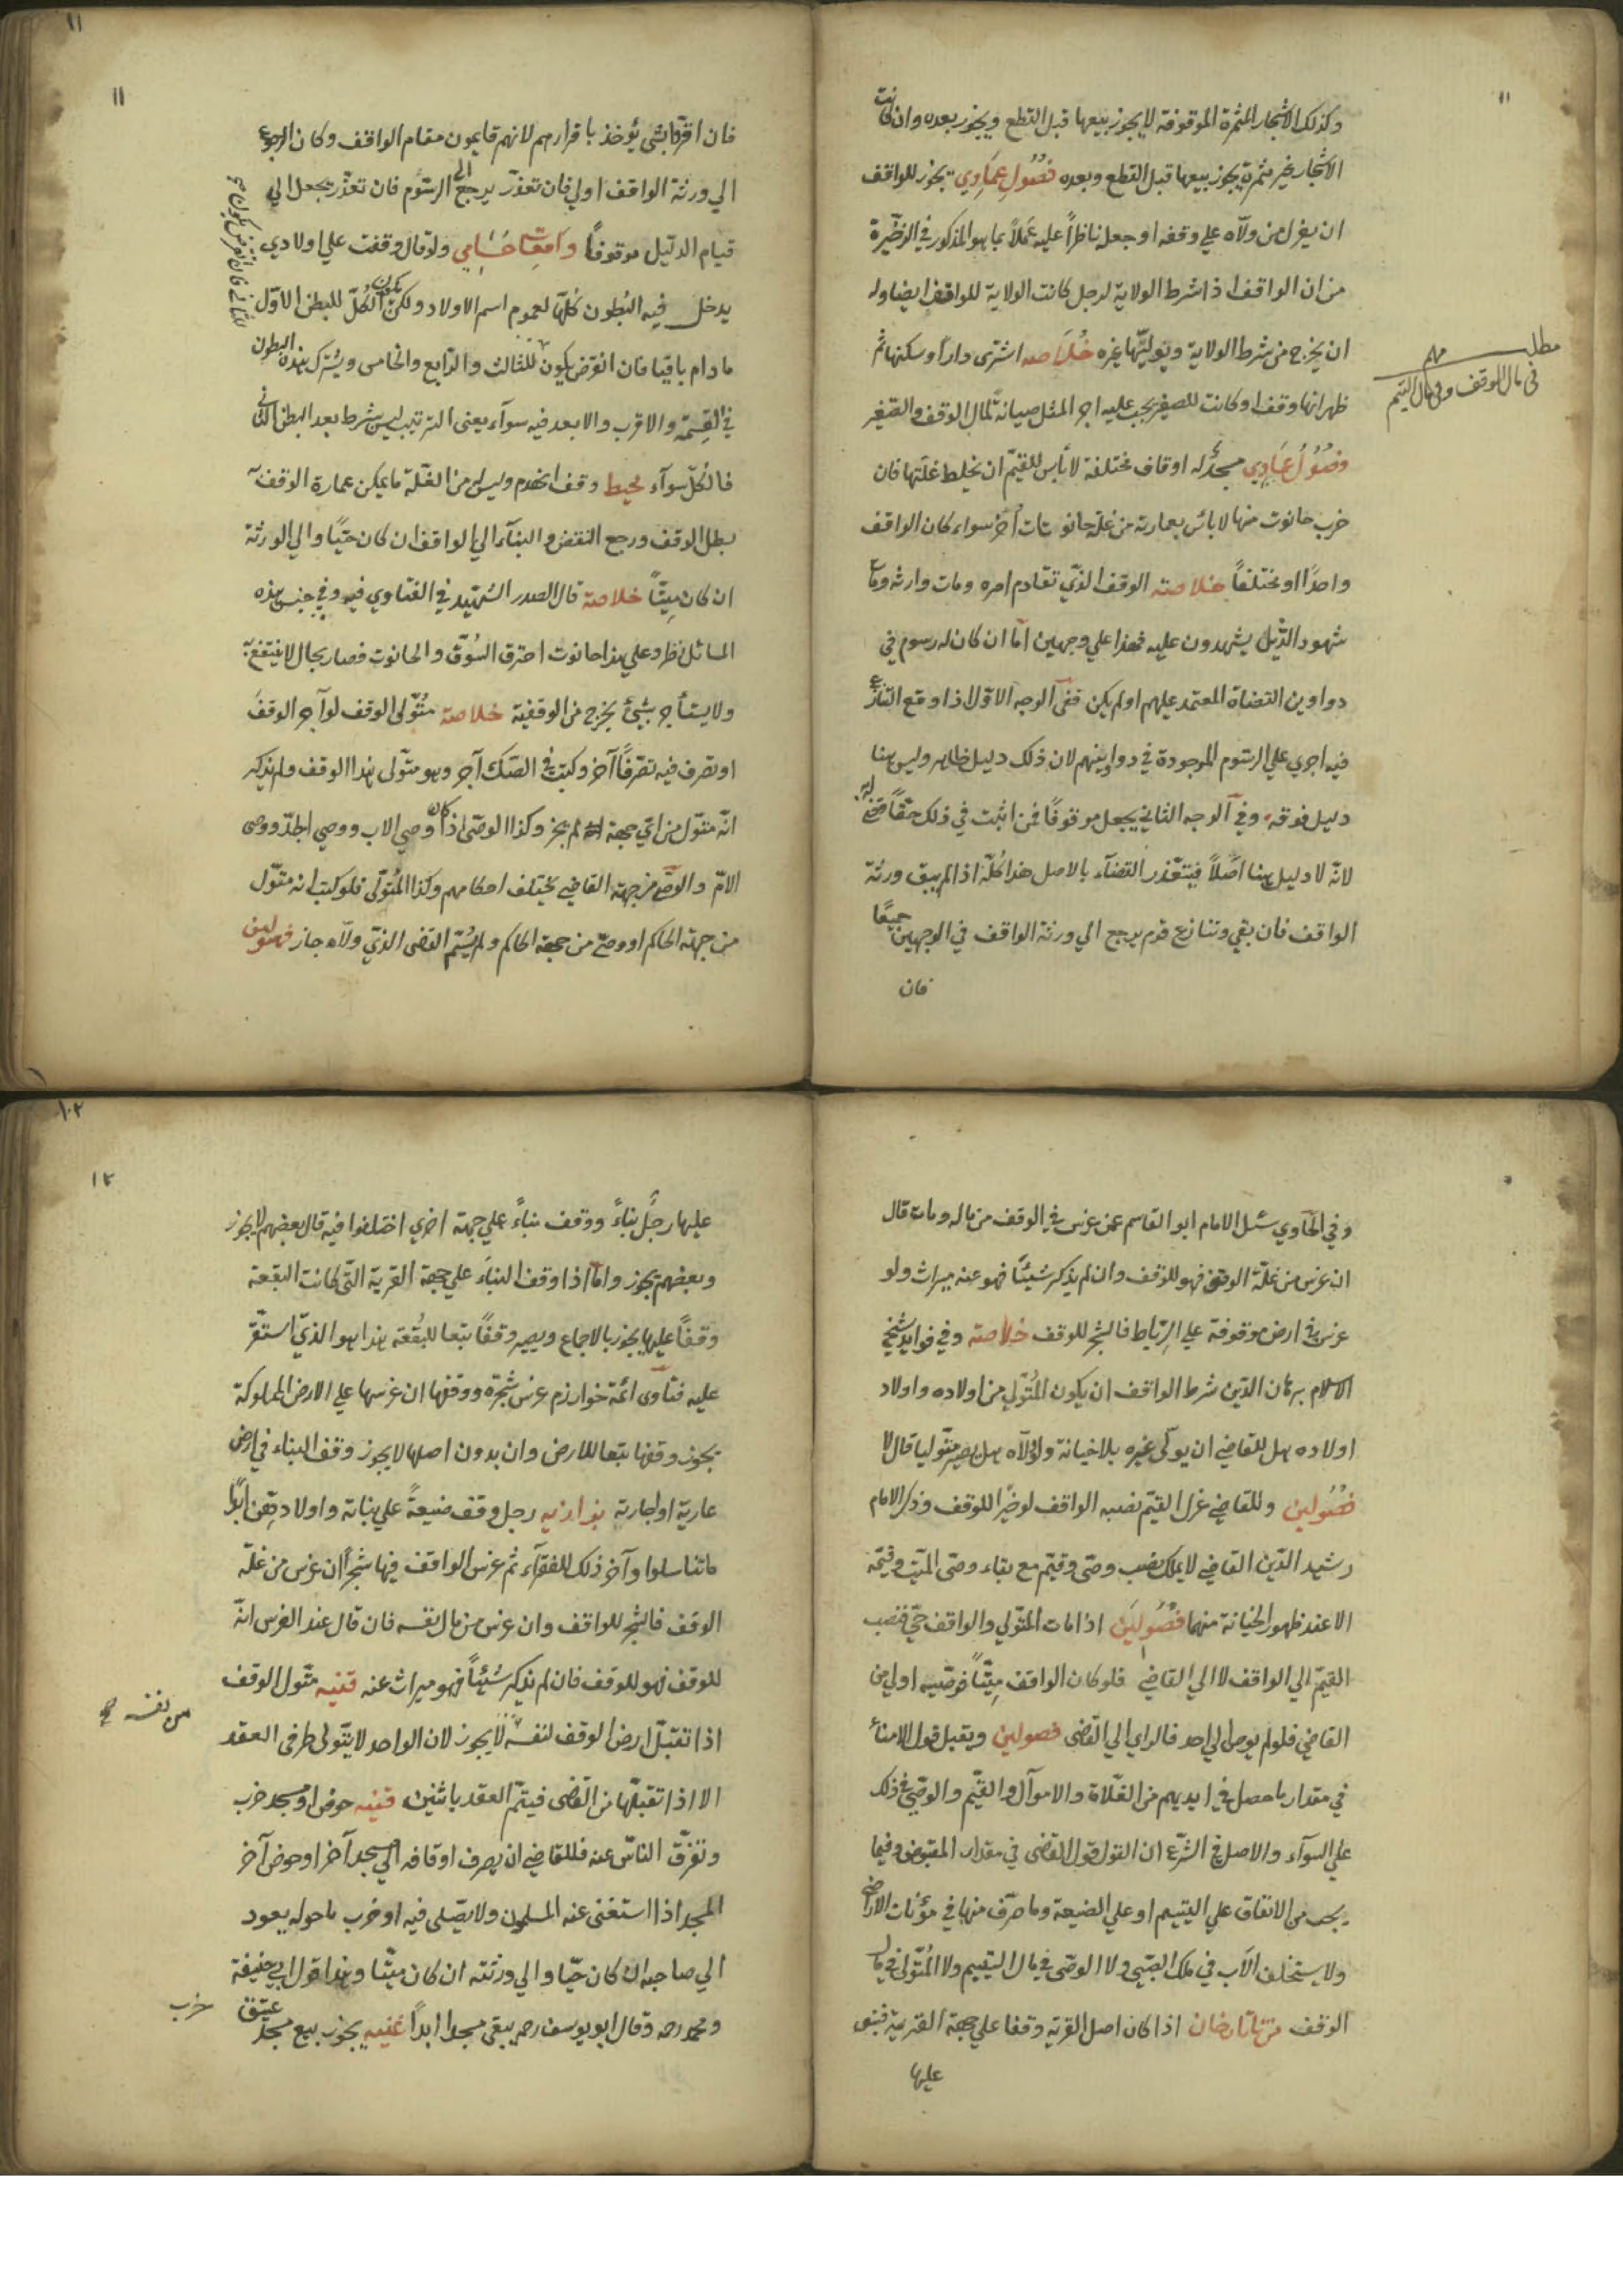 وكذلك الاشجار المثمرة الموقوفة لا يجوز بيعها قبل القطع ويجوز بعده وان كانت
الاشجار غير مثمرة يجوز بيعها قبل القطع وبعده فصول عمادي يجوز للواقف
ان يعزل من ولاه علي وقفه او جعله ناظراً عليه عملاً بما هو المذكور في الذخيرة
من ان الواقف اذا شرط الولاية لرجل كانت الولاية للواقف ايضا وله
ان يخرج من شرط الولاية ويوليها غيره خلاصه اشترى داراً وسكنها ثم
ظهر انها وقف او كانت للصغير يجب عليه اجر المثل صيانة لمال الوقف والصغير
مطلب مهم
في مال الوقف وفي مال اليتيم
فصول عمادي مسجد له اوقاف مختلفة لا بأس للقيم ان يخلط غلتها فان
خرب حانوت منها لا باس بعمارته من غلة حانوت آخر سواء كان الواقف
واحدًا او مختلفاً خلاصته الوقف الذي تقادم امره ومات وارثه ومات
شهود الذين يشهدون عليه فهذا علي وجهين اما ان كان له رسوم في
دواوين القضاة المعتمد عليهم او لم يكن ففي الوجه الاول اذا وقع التنازع
فيه اجري علي الرسوم الموجودة في دواوينهم لان ذلك دليل ظاهر وليس هنا
دليل فوقه وفي الوجه الثاني يجعل موقوفاً فمن اثبت في ذلك حقاً قضي له
لانه لا دليل هنا اصلاً فيتعذر القضاء بالاصل هذا كله اذا لم يبق ورثة
الواقف فان بقي وتنازع قوم يرجع الي ورثة الواقف في الوجهين جميعًا
فان
١١
فان اقروا بشي يؤخذ باقرارهم لانهم قايمون مقام الواقف وكان الرجوع
الي ورثة الواقف اولي فان تعذر يرجع الي الرسوم فان تعذر يجعل الي
قيام الدليل موقوفاً واقعات حسامي ولو قال وقفت علي اولادي
يدخل فيه البطون كلها لعموم اسم الاولاد ولكن يكون الكل للبطن الاول
ما دام باقيا فان انقرض يكون للثالث والرابع والخامس ويشترك هذه البطون
في القسمة والاقرب والابعد فيه سوآء يعنى الترتيب ليس شرط بعد البطن الثاني
فالكل سوآء محيط وقف انهدم وليس له من الغلة ما يمكن عمارة الوقف به
بطل الوقف ورجع النقض والبنآء الي الواقف ان كان حيًا والي الورثة
ان كان ميتاً خلاصة قال الصدر الشهيد في الفتاوي فيه وفي جنس هذه
المسائل نظر وعلي هذا حانوت احترق السوق والحانوت فصار بحال لا ينتفع به
ولا يستأجر بشئ يخرج من الوقفية خلاصة متولى الوقف لو آجر الوقف
او تصرف فيه تصرفًا آخر وكتب في الصك آجر وهو متولى هذا الوقف ولم يذكر
انه متول من اي جهة لم يجز وكذا الوصى اذا كان وصي الاب ووصي الجد ووصى
الام والوصي من جهة القاضي يختلف احكامهم وكذا المتولى فلو كتب انه متول
من جهة الحاكم او وصي من جهة الحاكم ولم يسم القضى الذي ولاه جاز فصولين
وفي الحاوي سئل الامام ابو القاسم عمن غرس في الوقف من ماله ومات قال
ان غرس من غلة الوقف فهو للوقف وان لم يذكر شيئاً فهو عنه ميراث ولو
غرس في ارض موقوفة علي الرباط فالشجر للوقف خلاصته وفي فوايد شيخ
الاسلام برهان الدين شرط الواقف ان يكون المتولي من اولاده واولاد
اولاده هل للقاضي ان يولى غيره بلا خيانة ولو ولاه هل يصير متوليا قال لا
فصولين وللقاضي عزل القيم نصبه الواقف لو خيرا للوقف وذكر الامام
رشيد الدين القاضي لا يملك نصب وصى وقيم مع بقاء وصى الميت وقيمه
الا عند ظهور الخيانة منهما فصولين اذا مات المتولي والواقف حي فنصب
القيم الي الواقف لا الي القاضي فلو كان الواقف ميتاً فوصيه اولي من
القاضي فلو لم يوص الي احد فالراي الي القضى فصولين ويقبل قول الامنآ
في مقدار ما حصل في ايديهم من الغلات والاموال والقيم والوصي في ذلك
علي السوآء والاصل في الشرع ان القول قول القضى في مقدار المقبوض وفيما
يجب من الانفاق علي اليتيم او علي الضيعة وما صرف منها في مؤنات الاراضي
ولا يستحلف الاب في ملك الصبي ولا الوصى في مال اليتيم ولا المتولى في مال
الوقف من تاتارخان اذا كان اصل القرية وقفا علي جهة القربة فبنى
عليها
١٢
عليها رجل بناءً ووقف بناءً علي جهة اخري اختلفوا فيه قال بعضهم لا يجوز
وبعضهم يجوز واما اذا وقف البناء علي جهة القرية التى كانت البقعة
وقفاً عليها يجوز بالاجماع ويصير وقفًا تبعا للبقعة هذا هو الذي استقر
عليه فتاوى ائمة خوارزم غرس شجرة ووقفها ان غرسها علي الارض المملوكة
يجوز وقفها تبعا للارض وان بدون اصلها لا يجوز وقف البناء في ارض
عارية او اجارية بزازيه رجل وقف ضيعةً علي بناته واولادهن ابداً
ما تناسلوا وآخر ذلك للفقرآء ثم غرس الواقف فيها شجراً ان غرس من غلة
الوقف فالشجر للواقف وان غرس من مال نفسه فان قال عند الغرس انه
للوقف فهو للوقف فان لم يذكر شيئاً فهو ميراث عنه قنيه متول الوقف
من نفسه صح
اذا تقبل ارض الوقف لنفسه لا يجوز لان الواحد لا يتولى طرفى العقد
الا اذا تقبلها من القضى فيتم العقد باثنين قنيه حوض او مسجد خرب
وتفرق الناس عنه فللقاضي ان يصرف اوقافه الي مسجد آخر او حوض آخر
المسجد اذا استغنى عنه المسلمون ولا يصلى فيه او خرب ما حوله يعود
الي صاحبه ان كان حيًا والي ورثته ان كان ميتًا وهذا قول ابي حنيفة
ومحمد رحه وقال ابو يوسف رحه يبقى مسجدا ابداً غنيه يجوز بيع مسجد عتيق
خرب